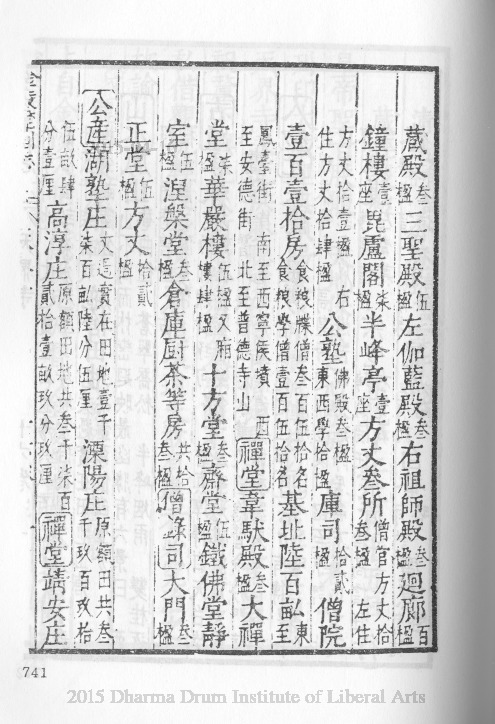 藏殿叁楹三聖殿伍楹左伽藍殿叁楹右祖師殿叁楹迴廊百楹
鐘樓壹座毘盧閣柒楹半峰亭壹座方丈叁所僧官方丈拾叁楹左住
方丈拾壹楹右住方丈拾肆楹公塾佛殿叁楹東西學拾楹庫司拾貳楹僧院
壹百壹拾房食粮牒僧叁百伍拾名食粮學僧壹百伍拾名基址陸百畝東至
鳳臺街南至西寧侯墳西至安德街北至普德寺山禪堂韋馱殿叁楹大禪
堂柒楹華嚴樓伍楹又廂樓肆楹十方堂叁楹齋堂伍楹鐵佛堂靜
室伍楹涅槃堂叁楹倉庫厨茶等房共拾叁楹僧錄司大門叁楹
正堂伍楹方丈拾貳楹
公產湖塾庄丈過實在田地壹千柒百畝陸分伍厘溧陽庄原額田共叁千玖百玖拾
伍畝肆分壹厘高淳庄原額田地共叁千柒百貳拾壹畝玖分玖厘禪堂靖安庄
741
2015 Dharma Drum Institute of Liberal Arts